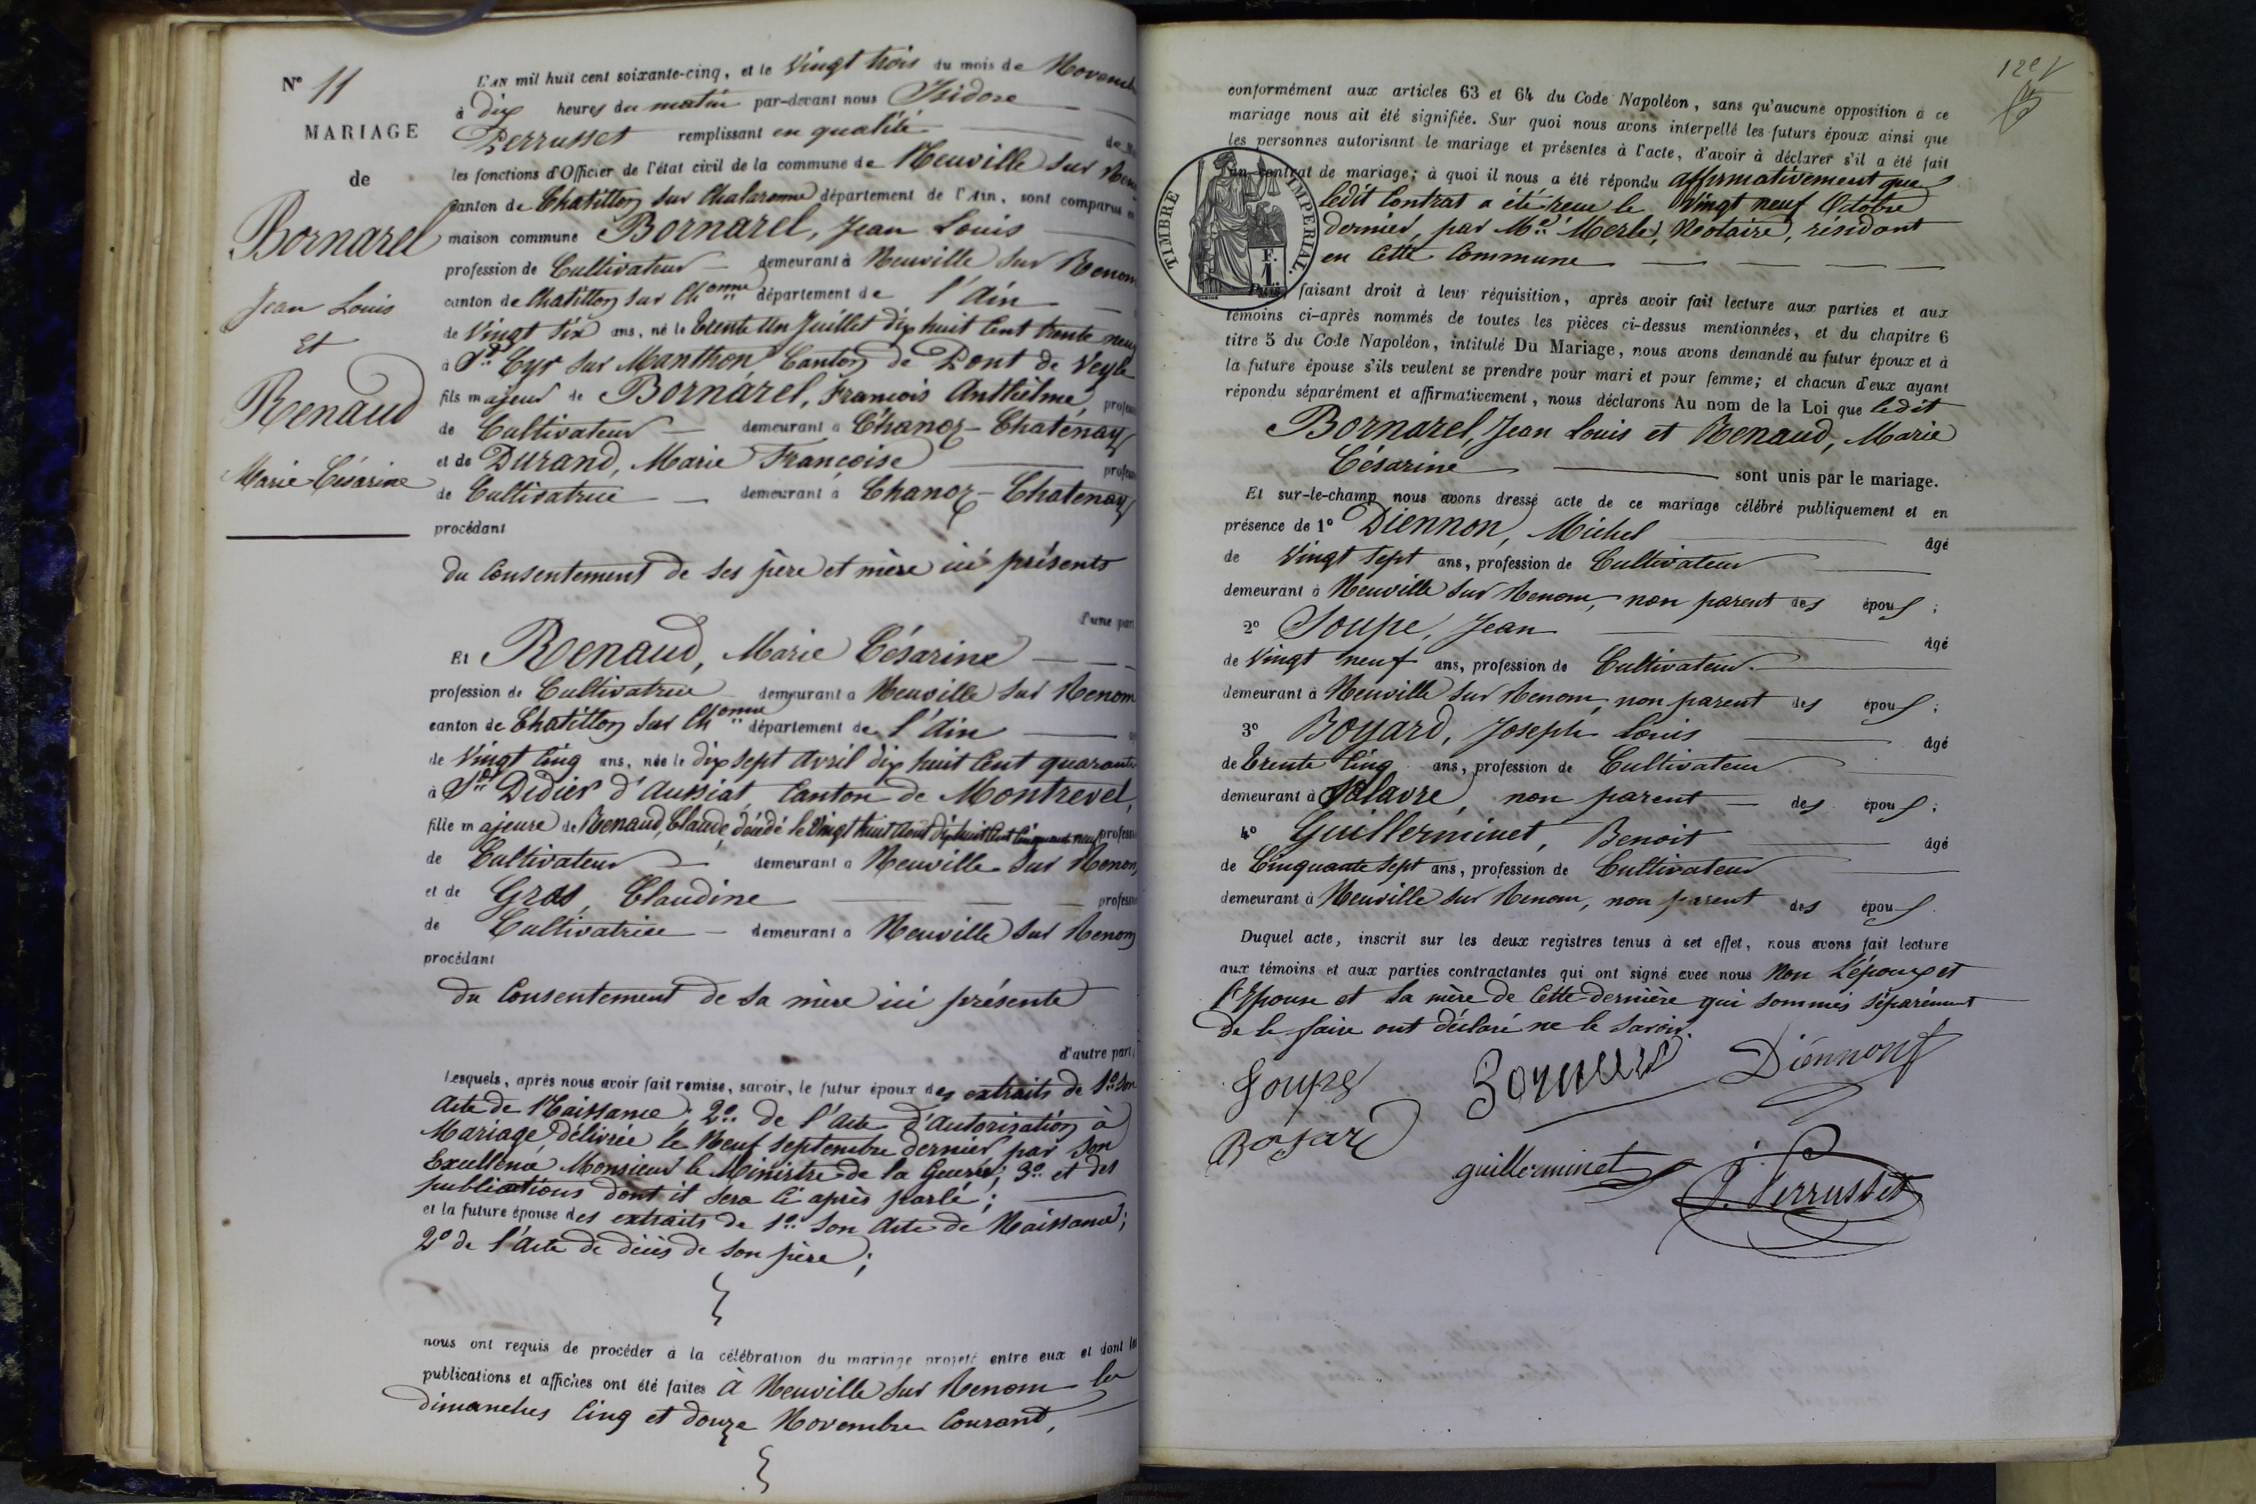 N° 11
MARIAGE
de
Bornarel
Jean Louis
Et
Renaud
Marie Césarine
L'AN mil huit cent soixante-cinq, et le Vingt trois du mois de Novemb
à dix heures du matin par-devant nous Isidore
Perrusset remplissant en qualité de M
les fonctions d'Officier de l'état civil de la commune de Neuville sur Reno
canton de Chatillon sur Chalaronne département de l'Ain, sont comparus en
maison commune Bornarel, Jean Louis
profession de Cultivateur demeurant à Neuville sur Renom
canton de Chatillon sur Chonne département de l'Ain
de Vingt six ans, né le trente un Juillet dix huit Cent trente neuf
à St Cyr sur Manthon Canton de Pont de Veyle
fils majeur de Bornarel, François Anthelme profess
de Cultivateur demeurant à Chanoz-Chatenay
et de Durand, Marie Françoise profess
de Cultivatrice demeurant à Chanoz-Chatenay
procédant
du Consentement de ses père et mère ici présents
l'une part
Et Renaud, Marie Césarine
profession de Cultivatrice demeurant à Neuville sur Renom
canton de Chatillon sur Chonne département de l'Ain
de Vingt Cinq ans, née le dix sept Avril dix huit Cent quarante
à St Didier d'Aussiat Canton de Montrevel,
fille majeure de Renaud, Claude, décédé le Vingt huit Aout dix huit Cent Cinquante neuf profess
de Cultivateur demeurant à Neuville sur Renom
et de Gras, Claudine profess
de Cultivatrice demeurant à Neuville sur Renom
procédant
du Consentement de sa mère ici présente
d'autre part;
Lesquels, après nous avoir fait remise, savoir, le futur époux des extraits de 1° Son
Acte de Naissance; 2° de l'Acte d'Autorisation à
Mariage délivrée le Neuf Septembre dernier par Son
Excellence Monsieur le Ministre de la Guerre; 3° et des
publications dont il sera Ci après parlé;
et la future épouse des extraits de 1° Son Acte de Naissance;
2° de l'Acte de décès de son père;
nous ont requis de procéder à la célébration du mariage projeté entre eux et dont les
publications et affiches ont été faites à Neuville sur Renom les
dimanches Cinq et douze Novembre Courant,
conformément aux articles 63 et 64 du Code Napoléon, sans qu'aucune opposition à ce
mariage nous ait été signifiée. Sur quoi nous avons interpellé les futurs époux ainsi que
les personnes autorisant le mariage et présentes à l'acte, d'avoir à déclarer s'il a été fait
un contrat de mariage; à quoi il nous a été répondu affirmativement que
ledit Contrat a été reçu le Vingt neuf Octobre
dernier, par Me Merle, Notaire, résidant
en Cette Commune
TIMBRE IMPERIAL.
F. 1
Puis, faisant droit à leur réquisition, après avoir fait lecture aux parties et aux
témoins ci-après nommés de toutes les pièces ci-dessus mentionnées, et du chapitre 6
titre 5 du Code Napoléon, intitulé Du Mariage, nous avons demandé au futur époux et à
la future épouse s'ils veulent se prendre pour mari et pour femme; et chacun d'eux ayant
répondu séparément et affirmativement, nous déclarons Au nom de la Loi que ledit
Bornarel, Jean Louis et Renaud, Marie
Césarine sont unis par le mariage.
Et sur-le-champ nous avons dressé acte de ce mariage célébré publiquement et en
présence de 1° Diennon, Michel âgé
de Vingt sept ans, profession de Cultivateur
demeurant à Neuville sur Renom, non parent des épou ;
2° Soupe, Jean âgé
de Vingt neuf ans, profession de Cultivateur
demeurant à Neuville sur Renom, non parent des épou ;
3° Boyard, Joseph Louis âgé
de trente Cinq ans, profession de Cultivateur
demeurant à Salavre, non parent des épou ;
4° Guillerminet, Benoit âgé
de Cinquante sept ans, profession de Cultivateur
demeurant à Neuville sur Renom, non parent des épou
Duquel acte, inscrit sur les deux registres tenus à cet effet, nous avons fait lecture
aux témoins et aux parties contractantes qui ont signé avec nous Non L'époux et
l'Epouse et la mère de Cette dernière qui sommés séparément
de le faire ont déclaré ne le savoir.
Soupe Diennont
Boyard
guillerminet J. Perrusset